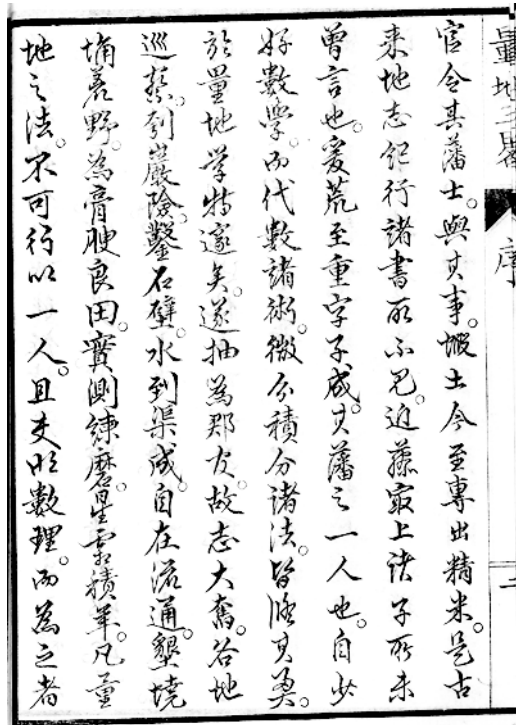 量地三畧
序
二
官令其藩士。與其事。蝦土今至專出精米。是古
来地志紀行諸書所不見。近藤最上諸子所未
曾言也。爰荒至重字子成。其藩之一人也。自少
好數學。而代數諸術。微分積分諸法。皆脩其奥。
於量地学特邃矣。遂抽為郡吏。故志大奮。谷地
巡察。到巖險。鑿石壁。水到渠成。自在流通。墾墝
埆荒野。為膏腴良田。實測練磨。星霜積年。凡量
地之法。不可行以一人。且夫明數理。而為之者